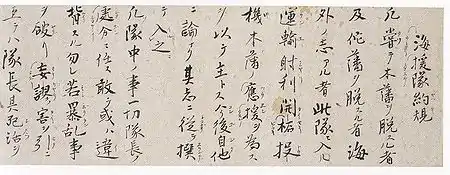 海援隊約規
凡嘗テ本藩ヲ脱スル者
及佗藩ヲ脱スル者海
外ノ志アル者此隊ニ入ル
運輸射利開柘投
機本藩ノ應援ヲ為ス
ヲ以テ主トス今後自他
ニ論ナク其志ニ従テ撰
テ入之
凡隊中ノ事一切隊長ノ
處分ニ任ス敢テ或ハ違
背スル勿レ若暴乱事
ヲ破リ妄謬害ヲ引ニ
至テハ隊長其死活ヲ